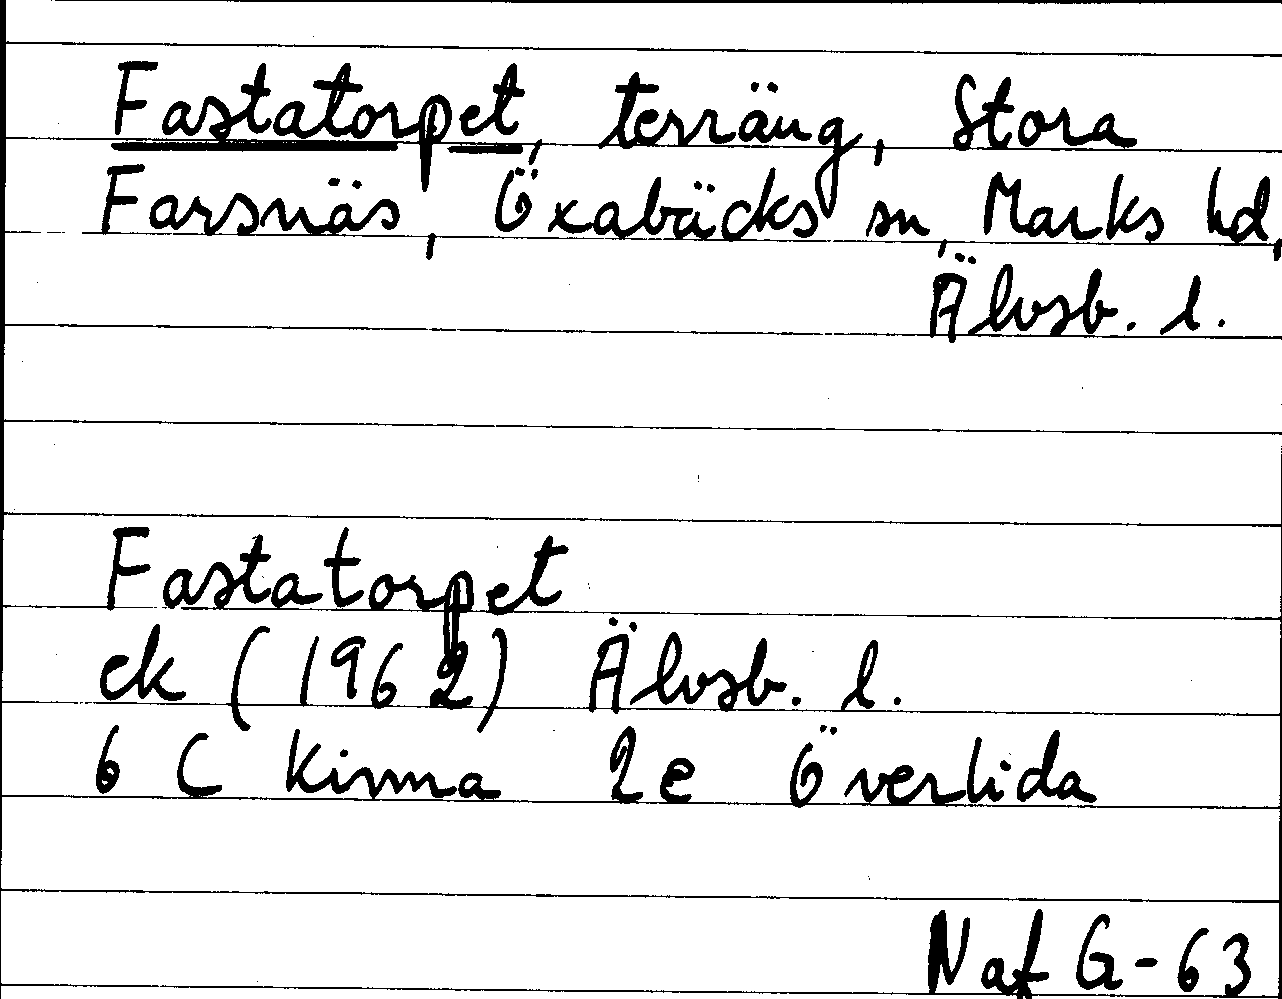 Fastatorpet, terräng, Stora
Farsnäs, Öxabäcks sn, Marks hd,
Älvsb. l.
Fastatorpet
ek (1962) Älvsb. l.
6 C Kinna 2e Överlida
Naf G-63